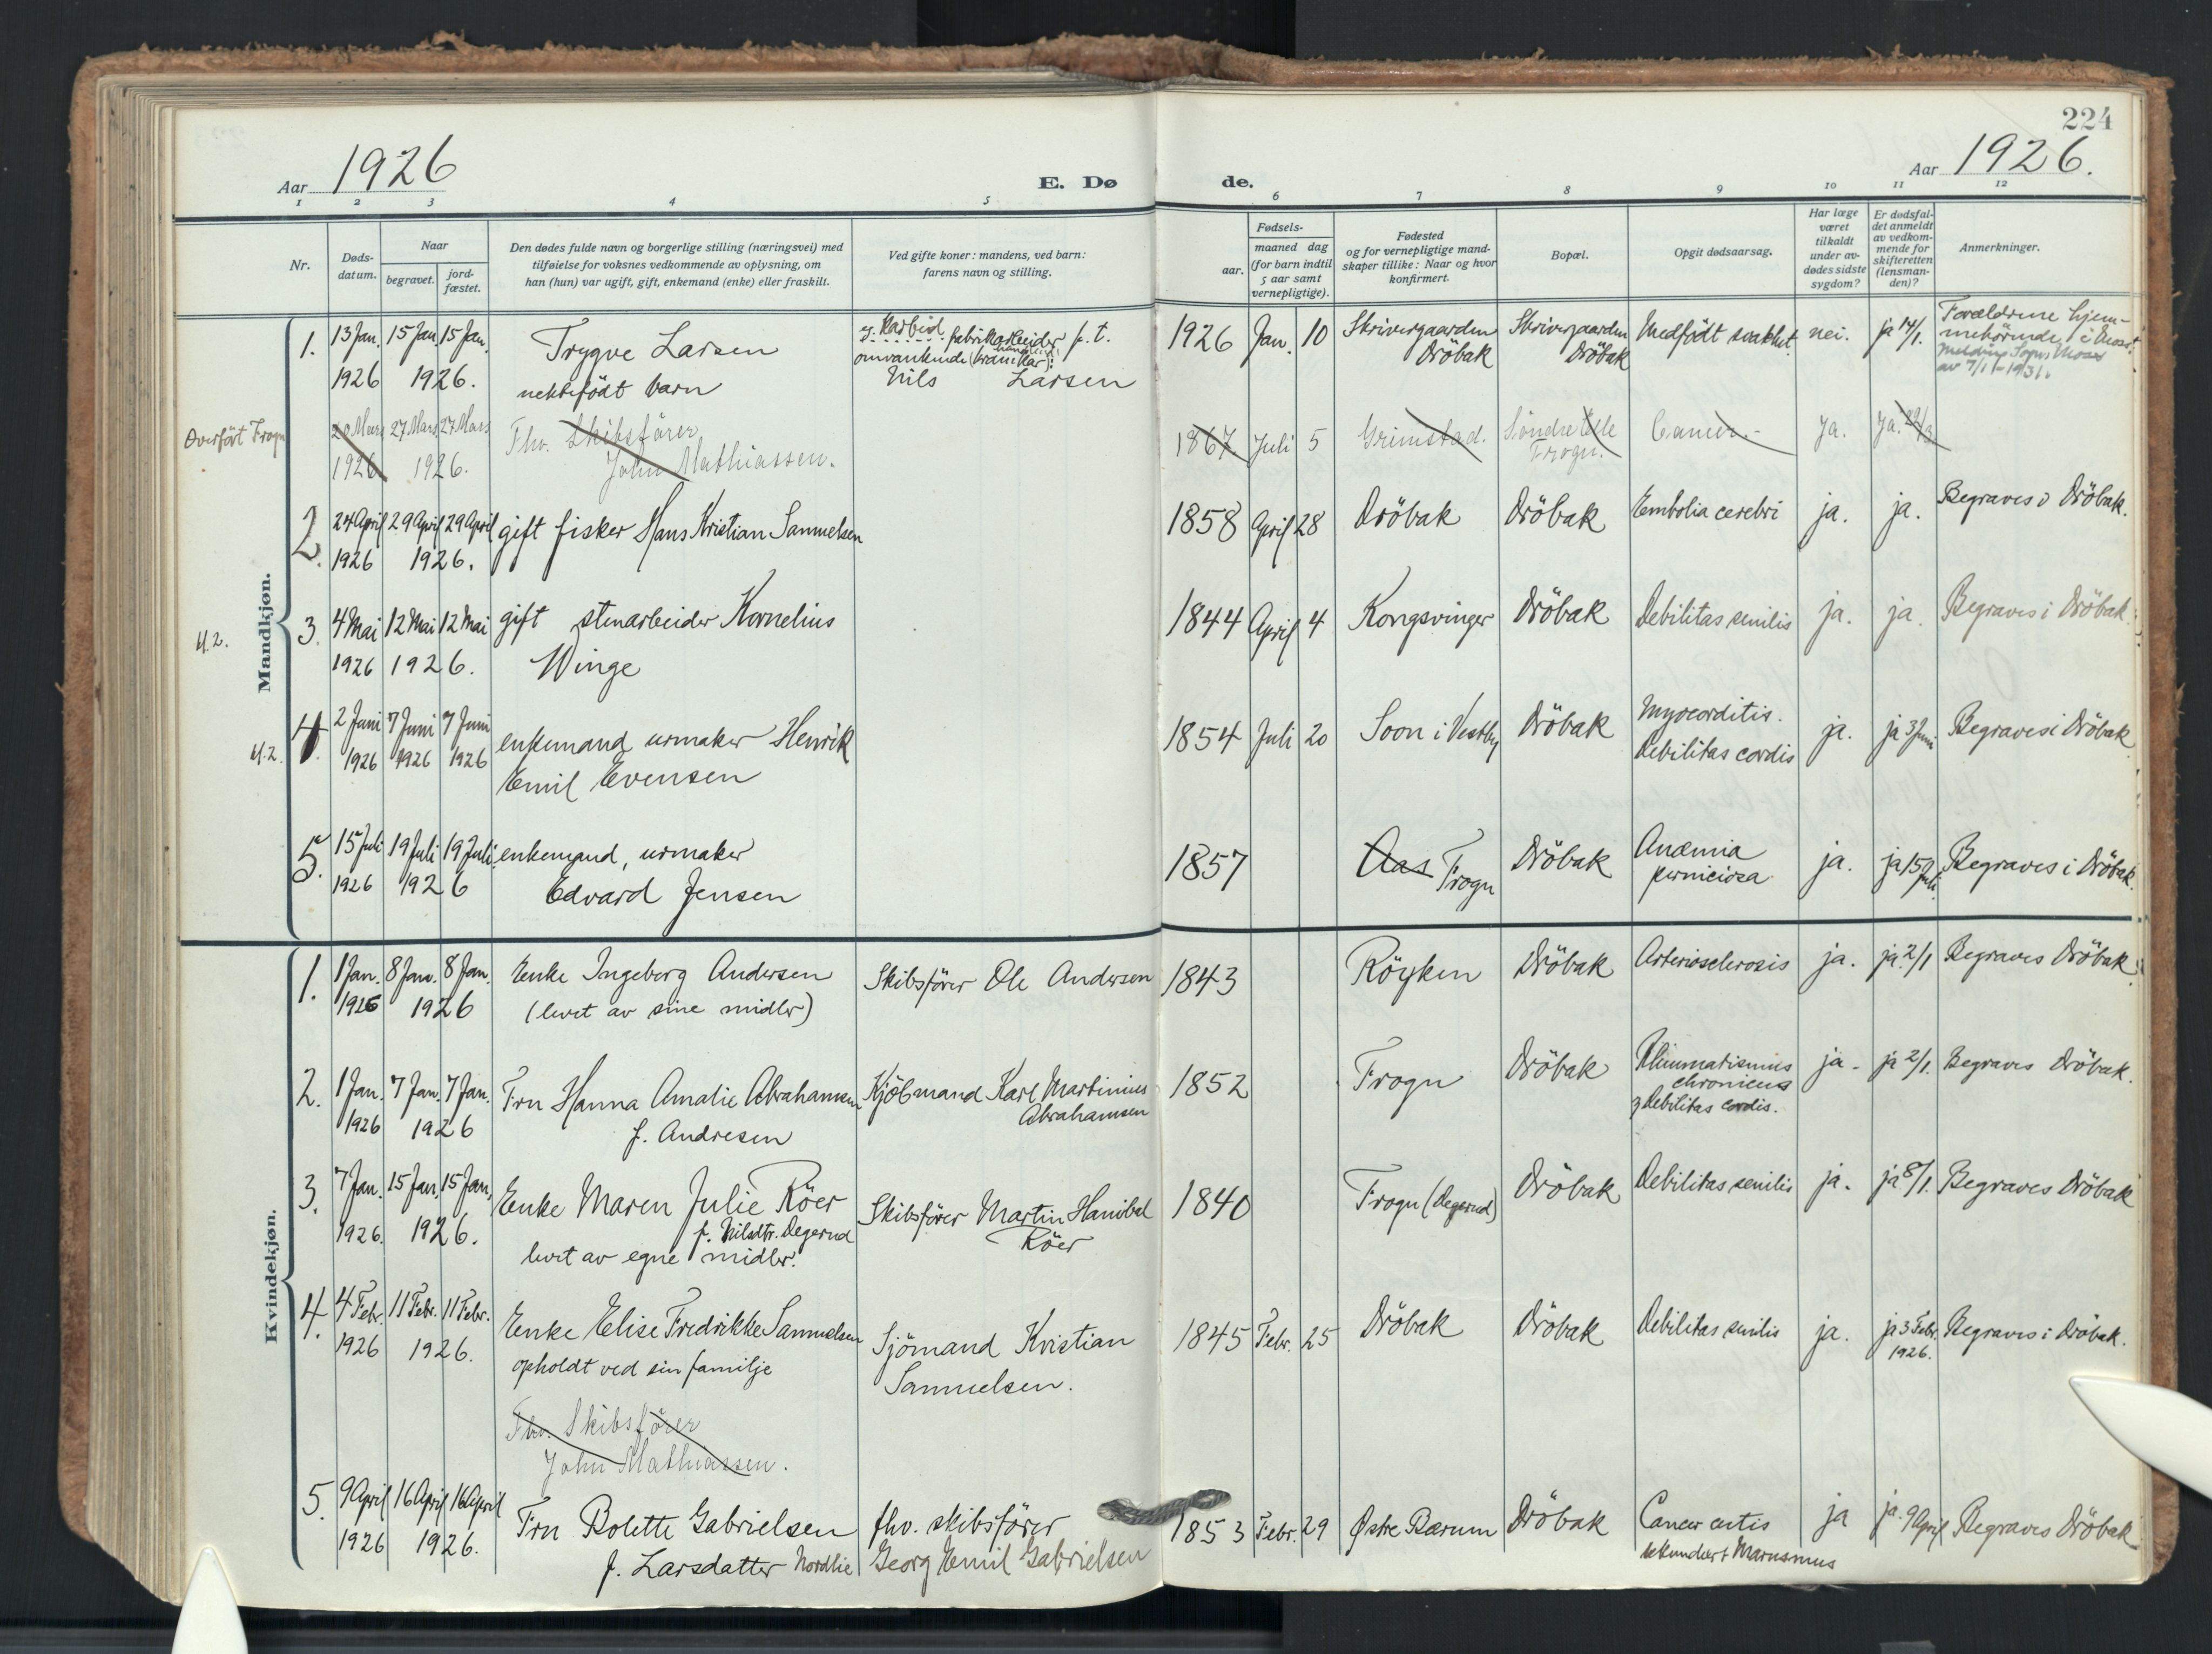 224
Aar 1926
E. Dø
de.
Aar 1926.
1 2 3 4 5 6 7 8 9 10 11 12
Nr.
Døds-
datum.
Naar
begravet.
jord-
fæstet.
Den dødes fulde navn og borgerlige stilling (næringsvei) med
tilføielse for voksnes vedkommende av oplysning, om
han (hun) var ugift, gift, enkemand (enke) eller fraskilt.
Ved gifte koner: mandens, ved barn:
farens navn og stilling.
Fødsels-
aar.
maaned dag
(for barn indtil
5 aar samt
vernepligtige).
Fødested
og for vernepligtige mand-
skaper tillike: Naar og hvor
konfirmert.
Bopæl.
Opgit dødsaarsag.
Har læge
været
tilkaldt
under av-
dødes sidste
sygdom?
Er dødsfal-
det anmeldt
av vedkom-
mende for
skifteretten
(lensman-
den)?
Anmerkninger.
Mandkjøn.
1. 13 Jan. 15 Jan. 15 Jan.
1926 1926.
Trygve Larsen
nektefödt barn
fabrikarbeider p. t.
omvankende
Nils Larsen
1926 Jan. 10 Skrivergaarden
Dröbak
Skrivergaarden
Dröbak
Medfödt svakhet. nei. ja 14/1.
Forældrene hjem-
mehörende i Moss.
Overfört Frogn
20 Mars 27 Mars 27 Mars
1926 1926.
Fhv. Skibsförer
John Mathiassen.
1867. Juli 5 Grimstad. Söndre Elle
Frogn.
Cancer. Ja. Ja. 22/3
2. 24 April 29 April 29 April
1926 1926.
gift fisker Hans Kristian Samuelsen
1858 April 28 Dröbak Dröbak Embolia cerebri ja. ja. Begraves i Dröbak.
U. 2.
3. 4 Mai 12 Mai 12 Mai
1926 1926.
gift stenarbeider Kornelius
Winge
1844 April 4 Kongsvinger Dröbak Debilitas senilis ja. ja. Begraves i Dröbak.
U. 2.
4. 2 Juni 7 Juni 7 Juni
1926 1926 1926
enkemand urmaker Henrik
Emil Evensen
1854 Juli 20 Soon i Vestby Dröbak Myocarditis.
Debilitas cordis
ja. ja 3 Juni Begraves i Dröbak
5. 15 Juli 19 Juli 19 Juli
1926 1926
enkemand, urmaker
Edvard Jensen
1857 Aas Frogn Dröbak Anæmia
perniciosa
ja. ja 15 Juli. Begraves i Dröbak.
Kvindekjøn.
1. 1 Jan. 8 Jan. 8 Jan.
1926 1926
Enke Ingeborg Andersen
(levet av sine midler)
Skibsförer Ole Andersen
1843 Röyken Dröbak Arteriosclerosis ja. ja. 2/1 Begraves Dröbak.
2. 1 Jan. 7 Jan. 7 Jan.
1926 1926
Fru Hanna Amalie Abrahamsen
f. Andresen
Kjöbmand Karl Martinius
Abrahamsen
1852 Frogn Dröbak Rheumatismus
chronicus
& debilitas cordis.
ja. ja 2/1. Begraves Dröbak.
3. 7 Jan. 15 Jan. 15 Jan.
1926. 1926.
Enke Maren Julie Röer
f. Nilsdtr. Degerud
levet av egne midler.
Skibsförer Martin Hanibal
Röer
1840 Frogn (Degerud) Dröbak Debilitas senilis ja. ja 8/1. Begraves Dröbak
4. 4 Febr. 11 Febr. 11 Febr.
1926 1926.
Enke Elise Fredrikke Samuelsen
opholdt ved sin familje
Sjömand Kristian
Samuelsen.
1845 Febr. 25 Dröbak Dröbak Debilitas senilis ja. ja 3 Febr.
1926.
Begraves i Dröbak.
Fhv. Skibsförer
John Mathiassen.
5. 9 April 16 April 16 April
1926 1926.
Fru Bolette Gabrielsen
f. Larsdatter Nordlie
fhv. skibsförer
Georg Emil Gabrielsen
1853 Febr. 29 Østre Bærum Dröbak Cancer cutis
sekundært Marasmus
ja ja. 9 April Begraves Dröbak